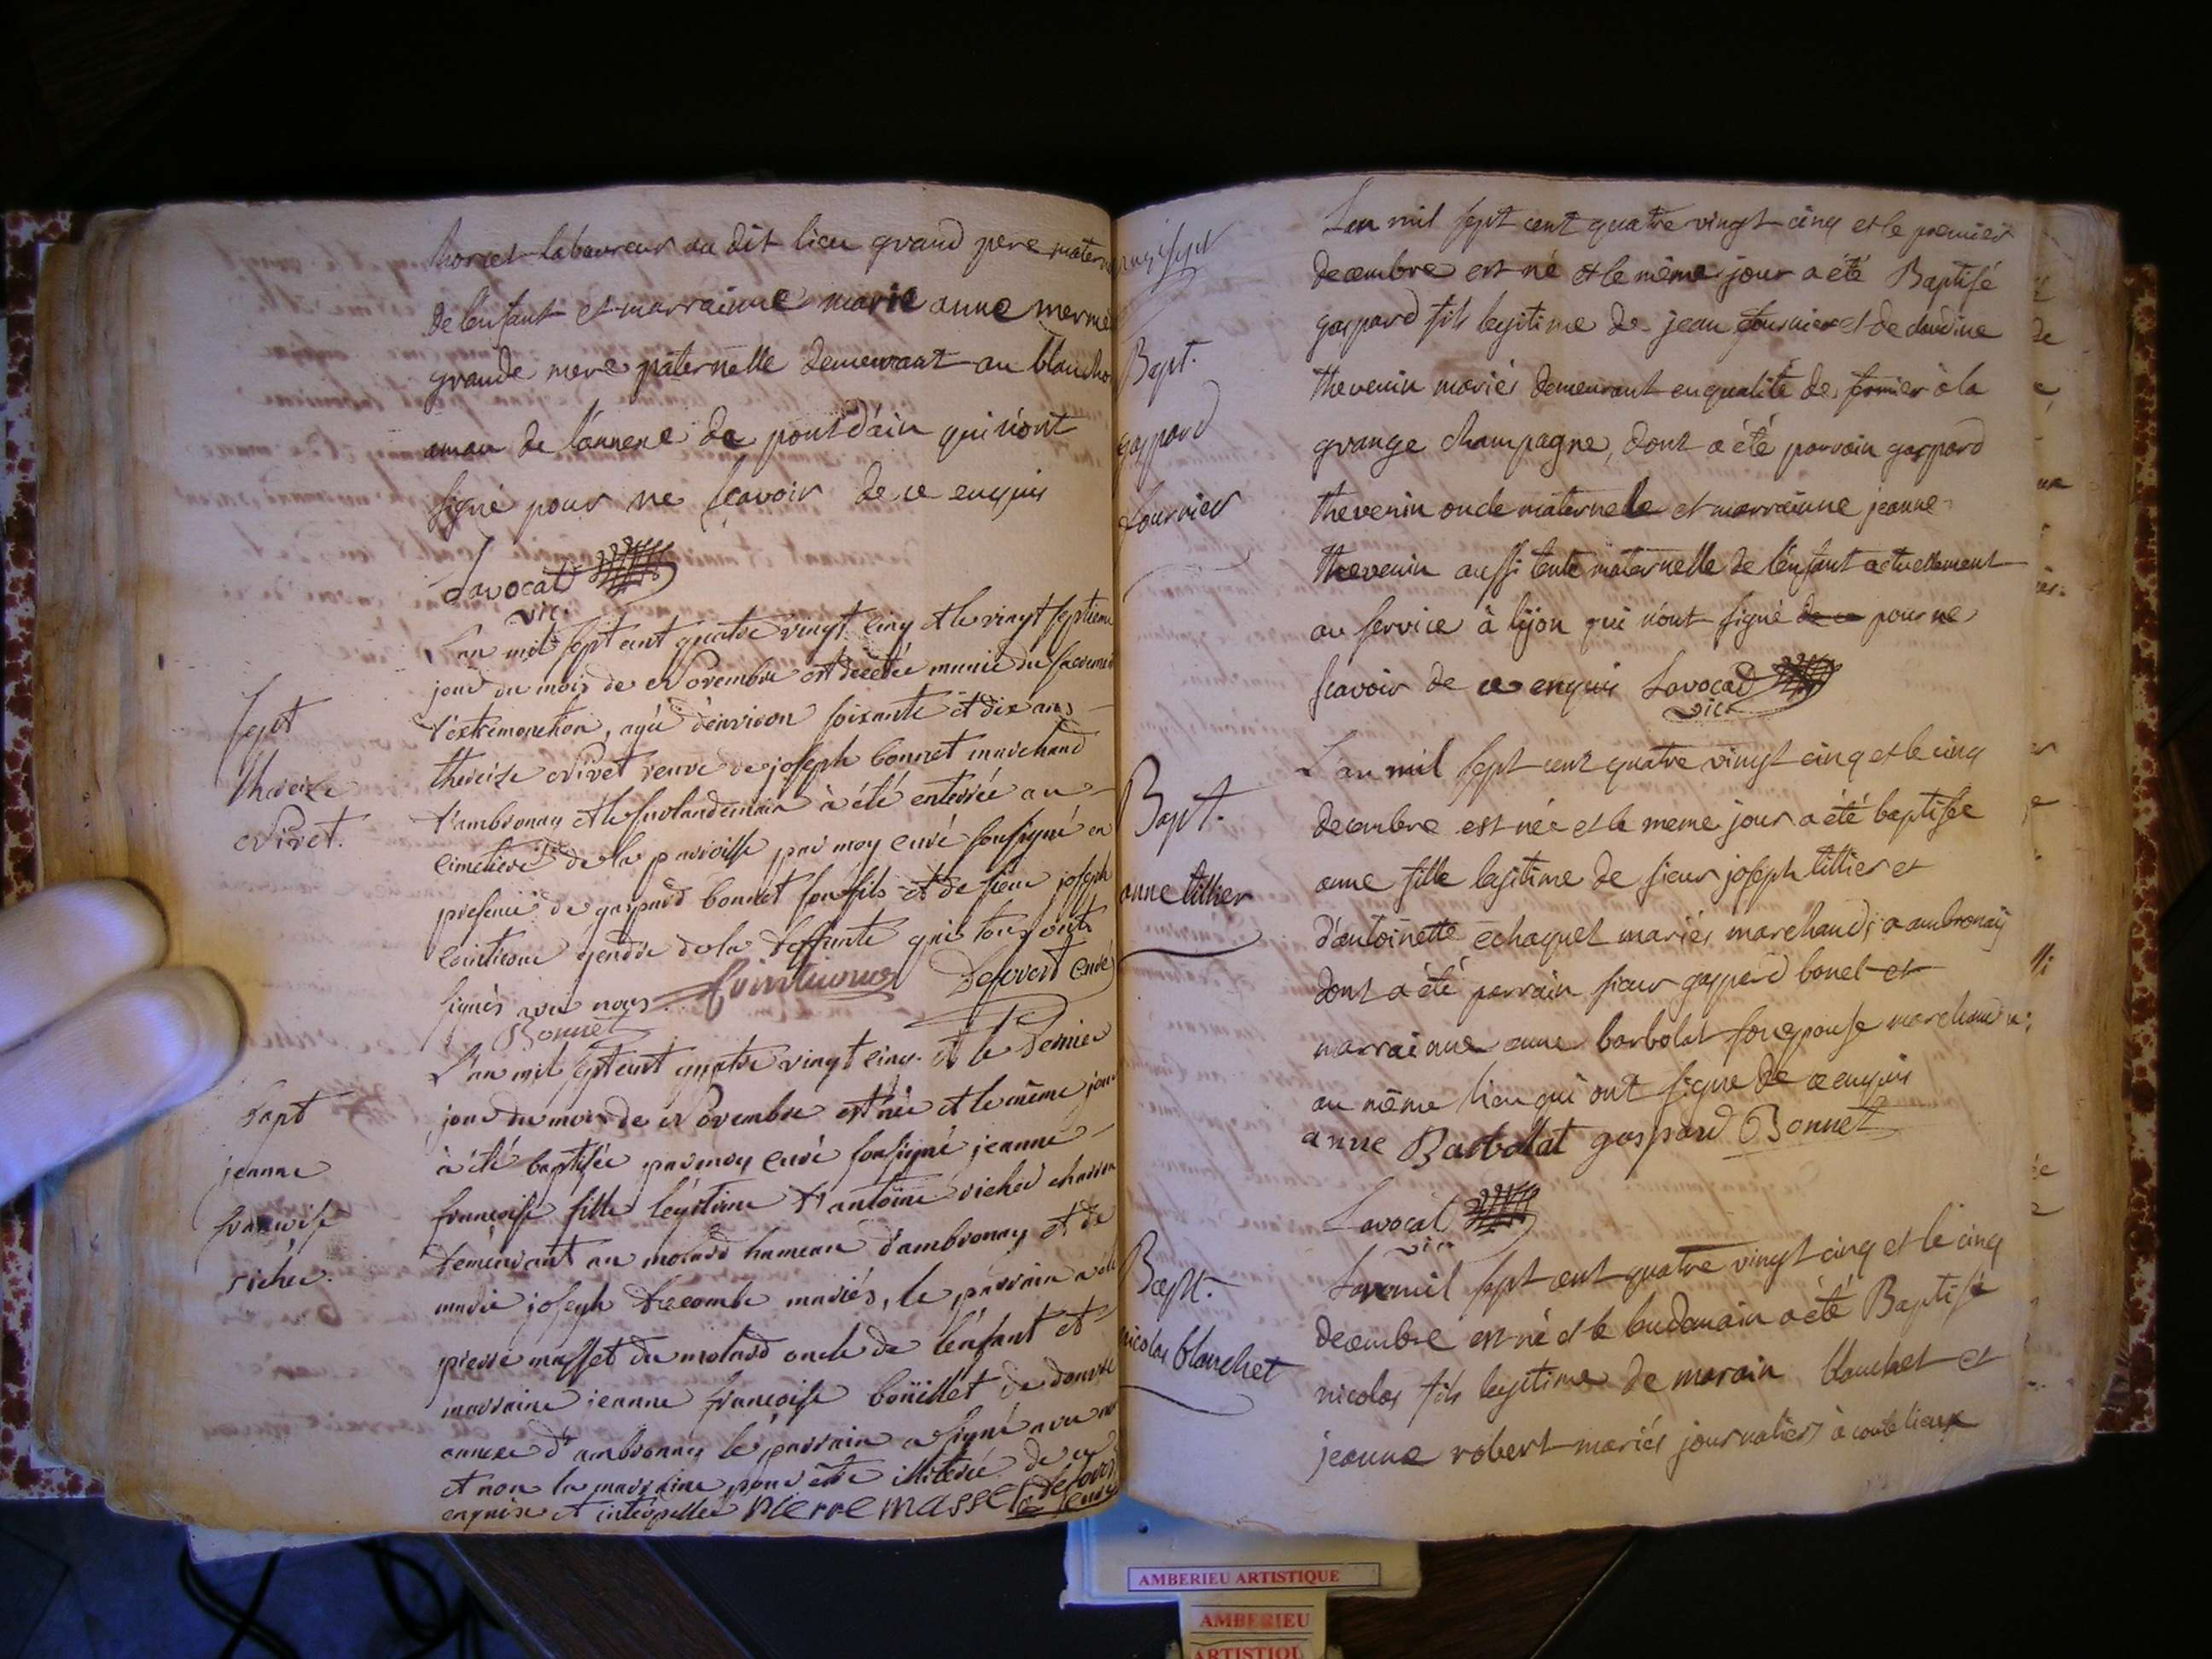 laboureur au dit lieu grand pere matern
de lenfant et marrainne marie anne merme
grande mere paternelle demeurant au blancho
de l'annexe de pont d'ain qui n'ont
signé pour ne scavoir de ce enquis
Lavocat
vic.
L'an mil sept cent quatre vingt cinq et le vingt septieme
jour du mois de Novembre est decedée munie du sacremen
d'extremonction, agée d'environ soixante et dix ans
Sept
thereze
Nivet.
thereize Nivet veuve de joseph bonnet marchand
d'ambronay et le surlandemain à été enterrée au
cimetiere de la paroisse par moy curé soussigné en
presence de gaspard bonnet son fils et de sieur joseph
gendre de la deffunte qui tous ont
signés avec nous
curé
Bonnet
L'an mil sept cent quatre vingt cinq et le dernier
Bapt
jeanne
francoise
richer.
jour du mois de Novembre est née et le même jour
à été baptisée par moy curé sousigné jeanne
françoise fille legitime d'antoine richer charron
demeurant au molard hameau d'ambronay et de
marie joseph mariés, le parrain a été
pierre masset du molard oncle de l'enfant et
marraine jeanne françoise boüillet de douvre
annexe d'ambronay le parrain a signé avec no
et non la marraine pour être illiterée de ce
enquise et interpellée pierre masset
Bapt.
gaspard
fournier
L'an mil sept cent quatre vingt cinq et le premier
decembre est né et le même jour a été Baptisé
gaspard fils legitime de jean fournier et de claudine
thevenin mariés demeurant en qualité de fermier à la
grange champagne, dont a été parrain gaspard
thevenin oncle maternelle et marrainne jeanne
thevenin aussi tante maternelle de l'enfant actuellement
au service à lyon qui n'ont signé de ce pour ne
scavoir de ce enquis Lavocat
vic.
Bapt.
anne tillier
L'an mil sept cent quatre vingt cinq et le cinq
decembre est née et le meme jour a été baptisée
anne fille legitime de sieur joseph tillier et
d'antoinette echaquet mariés marchands a ambronay
dont a été parrain sieur gaspard bonet et
marrainne anne barbolat son epouse marchand
au même lieu qui ont signé de ce enquis
anne Barbollat gaspard Bonnet
Lavocat
vic.
Bapt.
nicolas blanchet
L'an mil sept cent quatre vingt cinq et le cinq
decembre est né et le lendemain a été Baptisé
nicolas fils legitime de marain blanchet et
jeanne robert mariés journaliers à coutelieux
AMBERIEU ARTISTIQUE
AMBERIEU
ARTISTIQU